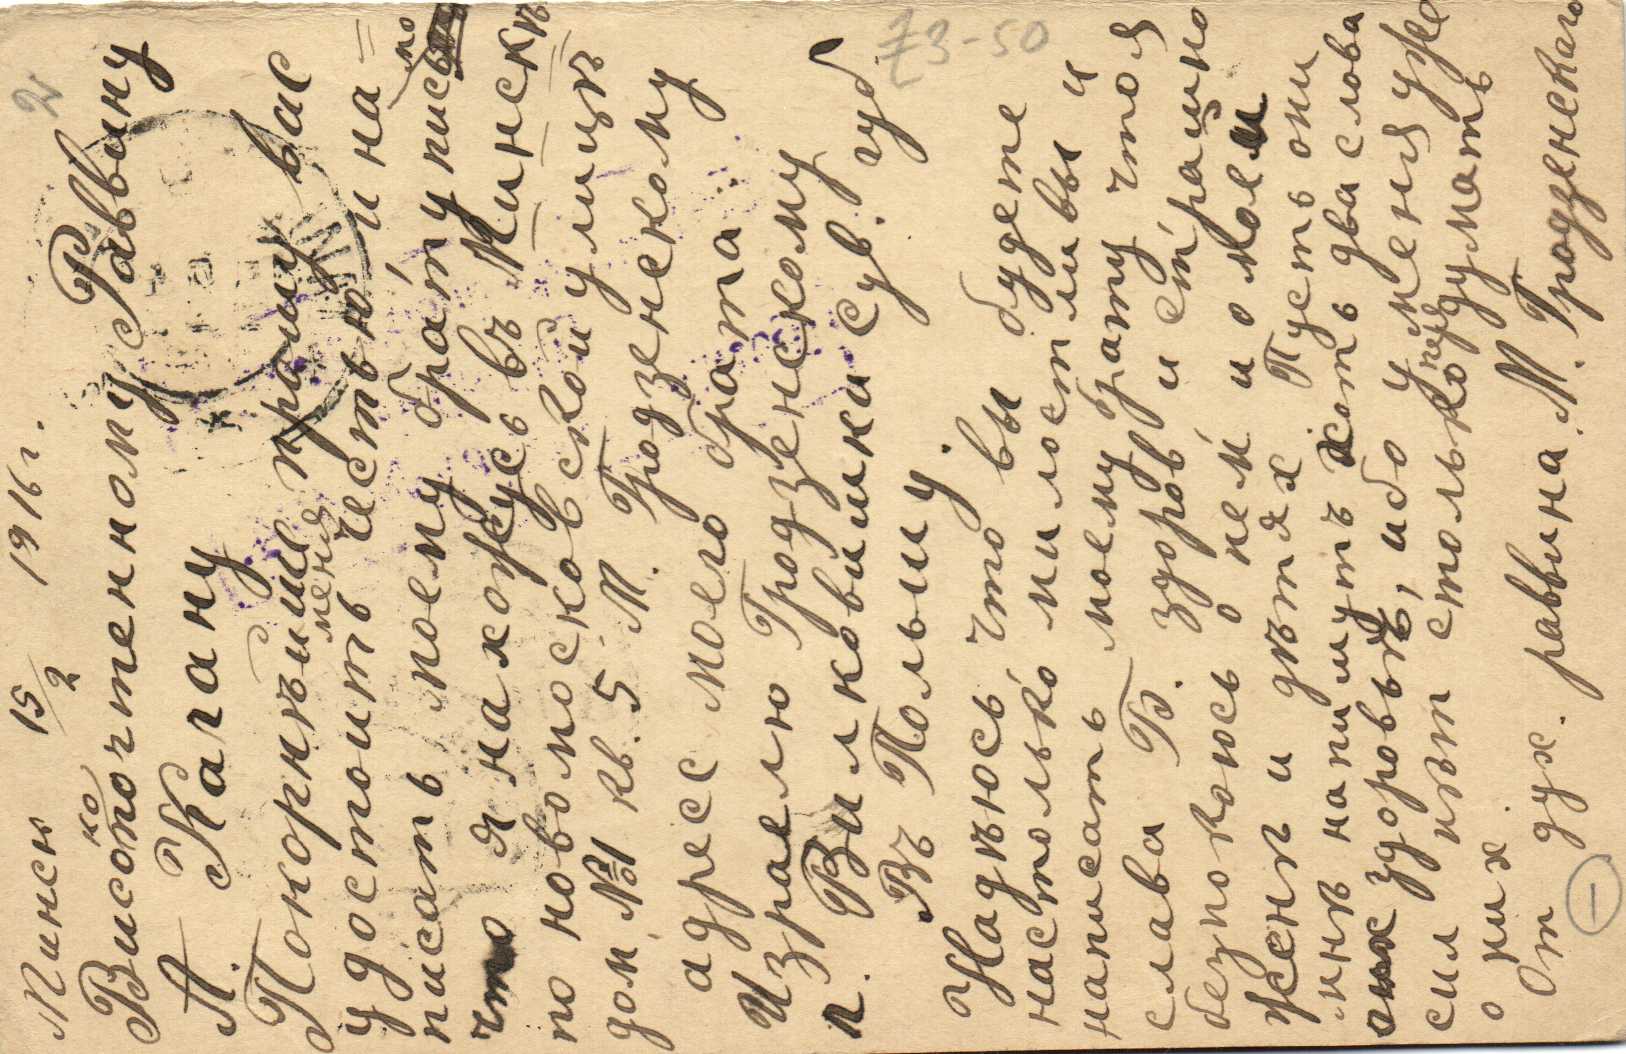 Минск 15/2 1916 г.
Высокопочтенному Раввину
А. Кагану
Покорнейше прошу вас
удостоить меня честью и на=
писать моему брату письмо
что я нахожусь в Минске
по новомосковской улице
дом. №1 кв. 5 М. Гродзенскому
адресс моего брата.
Израелю Гродзенскому
п. Вилковишки Сув. губ.
Въ Польшу.
Надеюсь что вы будете
настолько милостливы и
написать моему брату что я
слава Б. здоров и страшно
безпокоюсь о нем и о моем
жени и детях Пусть они
мне напишутъ хоть два слова
здоровье, ибо у меня уже
сил нет столько передумать
о них
От дух. раввина М. Гродзенскаго
73-50
2